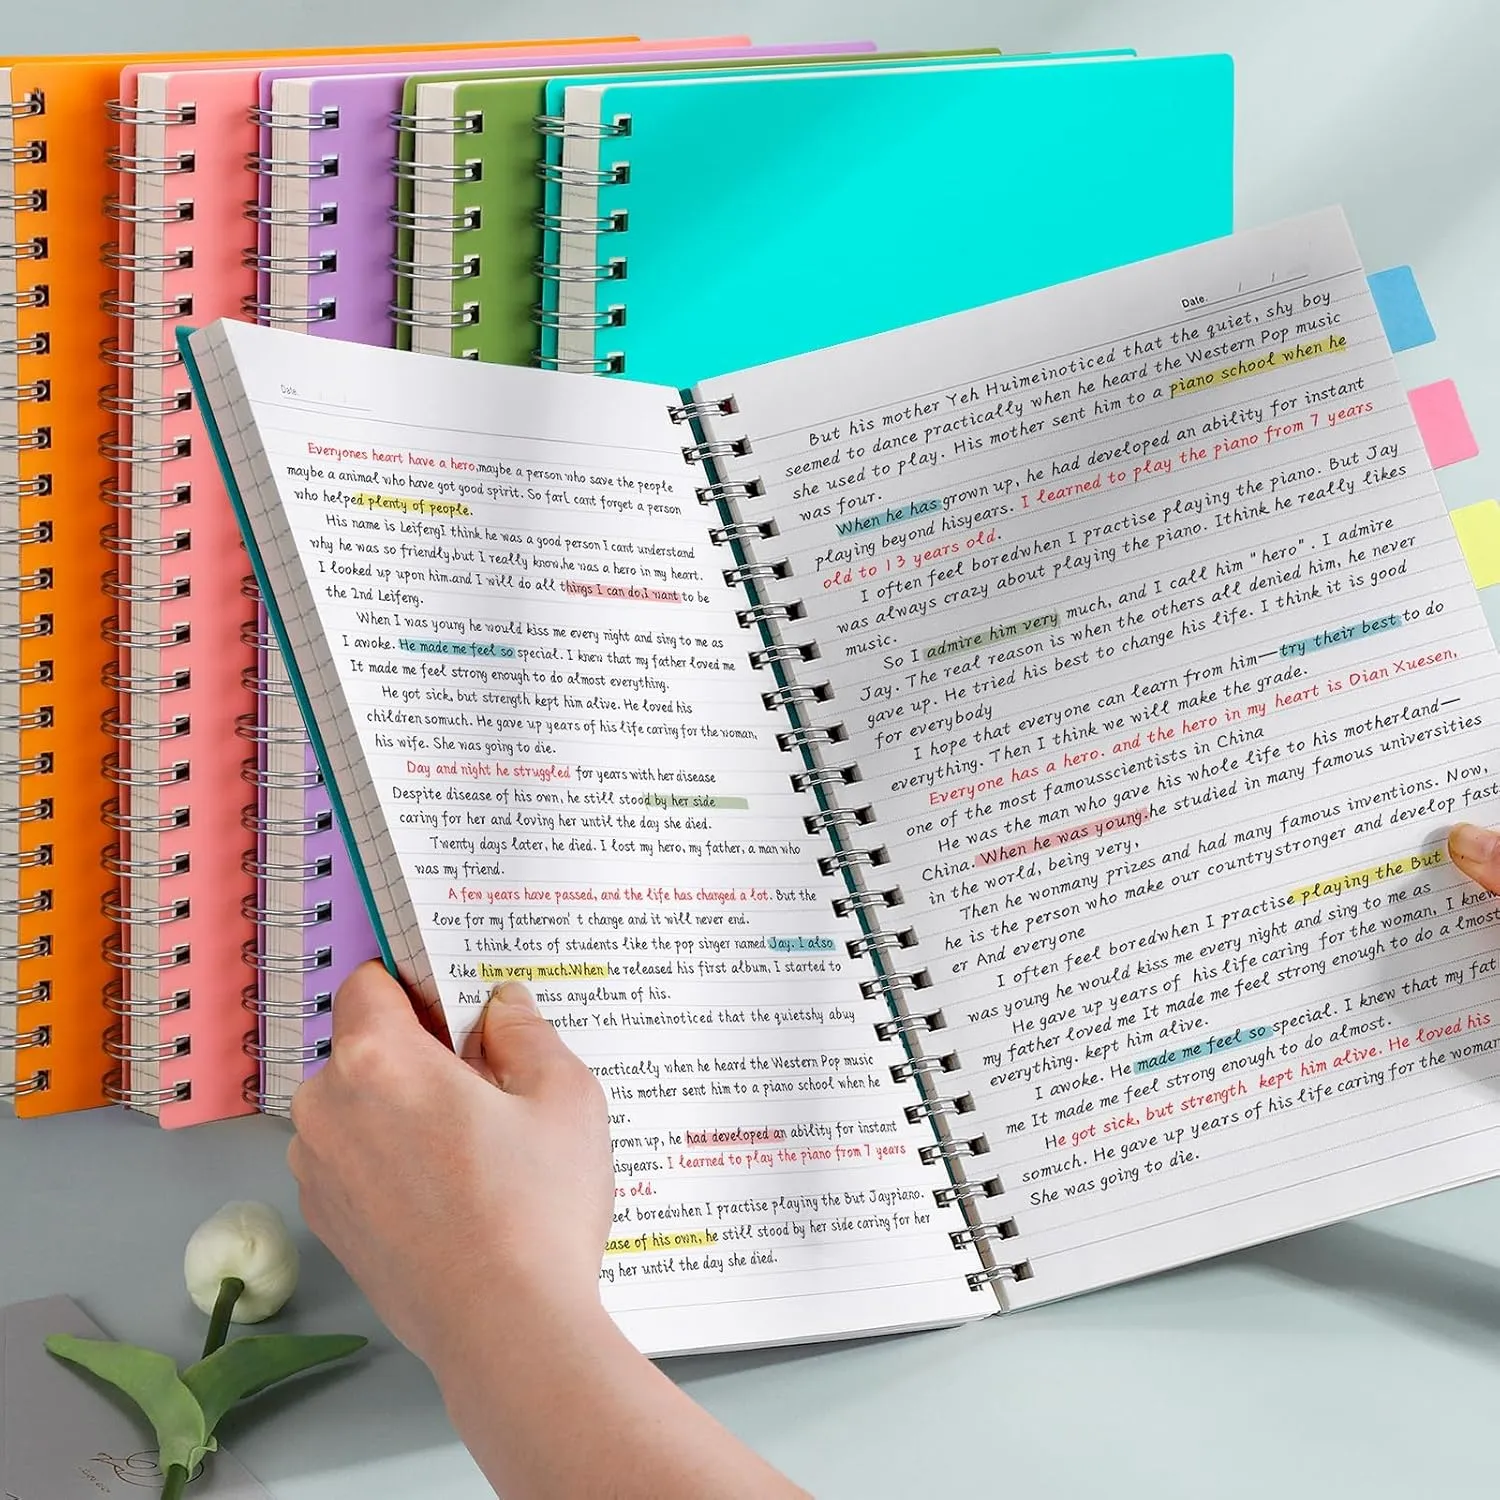 Date.
Everyones heart have a hero,maybe a person who save the people
maybe a animal who have got good spirit. So farI cant forget a person
who helped plenty of people.
His name is LeifengI think he was a good person I cant understand
why he was so friendly,but I really know,he was a hero in my heart.
I looked up upon him.and I will do all things I can do,I want to be
the 2nd Leifeng.
When I was young he would kiss me every night and sing to me as
I awoke. He made me feel so special. I knew that my father loved me
It made me feel strong enough to do almost everything.
He got sick, but strength kept him alive. He loved his
children somuch. He gave up years of his life caring for the woman,
his wife. She was going to die.
Day and night he struggled for years with her disease
Despite disease of his own, he still stood by her side
caring for her and loving her until the day she died.
Twenty days later, he died. I lost my hero, my father, a man who
was my friend.
A few years have passed, and the life has changed a lot. But the
love for my fatherwon' t change and it will never end.
I think lots of students like the pop singer named Jay. I also
like him very much.When he released his first album, I started to
And miss anyalbum of his.
Yeh Huimeinoticed that the quietshy abuy
when he heard the Western Pop music
His mother sent him to a piano school when he
up, he had developed an ability for instant
I learned to play the piano from 7 years
old.
boredwhen I practise playing the But Jaypiano.
of his own, he still stood by her side caring for her
her until the day she died.
Date. / /
But his mother Yeh Huimeinoticed that the quiet, shy boy
seemed to dance practically when he heard the Western Pop music
she used to play. His mother sent him to a piano school when he
was four.
When he has grown up, he had developed an ability for instant
playing beyond hisyears. I learned to play the piano from 7 years
old to 13 years old.
I often feel boredwhen I practise playing the piano. But Jay
was always crazy about playing the piano. Ithink he really likes
music.
So I admire him very much, and I call him "hero". I admire
Jay. The real reason is when the others all denied him, he never
gave up. He tried his best to change his life. I think it is good
for everybody
I hope that everyone can learn from him—try their best to do
everything. Then I think we will make the grade.
Everyone has a hero. and the hero in my heart is Dian Xuesen,
one of the most famousscientists in China
He was the man who gave his whole life to his motherland—
China. When he was young.he studied in many famous universities
in the world, being very,
Then he wonmany prizes and had many famous inventions. Now,
he is the person who make our countrystronger and develop fast
er And everyone
I often feel boredwhen I practise playing the But
was young he would kiss me every night and sing to me as
He gave up years of his life caring for the woman, I knew
my father loved me It made me feel strong enough to do a lmost
everything. kept him alive.
I awoke. He made me feel so special. I knew that my fat
me It made me feel strong enough to do almost.
He got sick, but strength kept him alive. He loved his
somuch. He gave up years of his life caring for the woman
She was going to die.